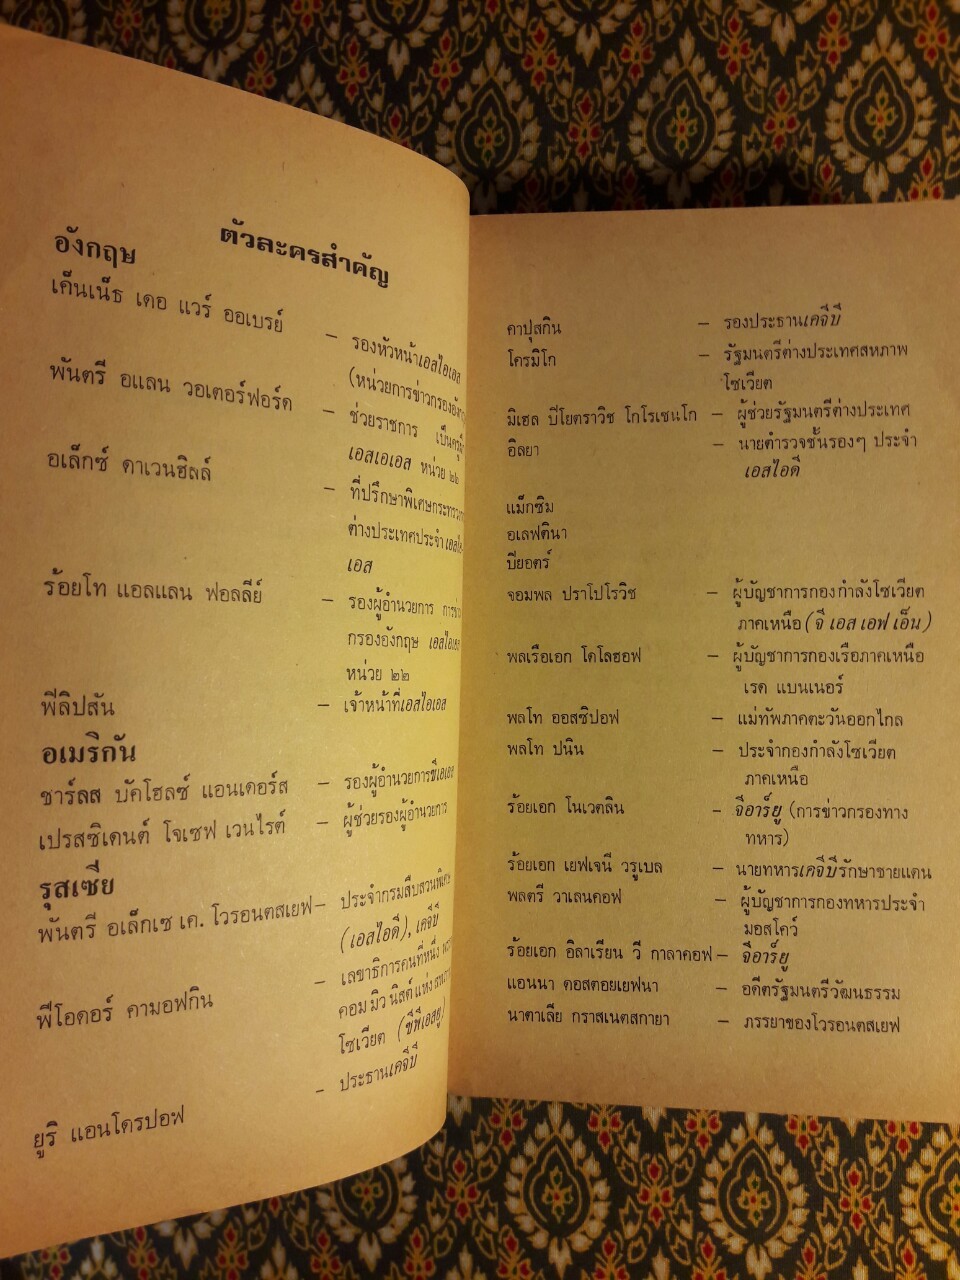 ตัวละครสำคัญ
อังกฤษ
เค็นเน็ธ เดอ แวร์ ออเบรย์ – รองหัวหน้าเอสไอเอส
(หน่วยการข่าวกรองอังกฤษ)
พันตรี อแลน วอเตอร์ฟอร์ด – ช่วยราชการ เป็นครูฝึก
เอสเอเอส หน่วย ๒๒
อเล็กซ์ ดาเวนฮิลล์ – ที่ปรึกษาพิเศษกระทรวงการ
ต่างประเทศประจำเอสไอ
เอส
ร้อยโท แอลแลน ฟอลลีย์ – รองผู้อำนวยการ การข่าว
กรองอังกฤษ เอสไอเอส
หน่วย ๒๒
ฟิลิปสัน – เจ้าหน้าที่เอสไอเอส
อเมริกัน
ชาร์ลส บัคโฮลซ์ แอนเดอร์ส – รองผู้อำนวยการซีไอเอ
เปรสซิเดนต์ โจเซฟ เวนไรต์ – ผู้ช่วยรองผู้อำนวยการ
รุสเซีย
พันตรี อเล็กเซ เค. โวรอนตสเยฟ – ประจำกรมสืบสวนพิเศษ
(เอสไอดี), เคจีบี
ฟีโอดอร์ คามอฟกิน – เลขาธิการคนที่หนึ่ง
คอมมิวนิสต์แห่ง
โซเวียต (ซีพีเอสยู)
ยูริ แอนโดรปอฟ – ประธานเคจีบี
คาปุสกิน – รองประธานเคจีบี
โครมิโก – รัฐมนตรีต่างประเทศสหภาพ
โซเวียต
มิเฮล ปีโยตราวิช โกโรเชนโก – ผู้ช่วยรัฐมนตรีต่างประเทศ
อิลยา – นายตำรวจชั้นรองๆ ประจำ
เอสไอดี
แม็กซิม
อเลฟตินา
ปิยอตร์
จอมพล ปราโปโรวิช – ผู้บัญชาการกองกำลังโซเวียต
ภาคเหนือ (จี เอส เอฟ เอ็น)
พลเรือเอก โดโลฮอฟ – ผู้บัญชาการกองเรือภาคเหนือ
เรด แบนเนอร์
พลโท ออสซิปอฟ – แม่ทัพภาคตะวันออกไกล
พลโท ปนิน – ประจำกองกำลังโซเวียต
ภาคเหนือ
ร้อยเอก โนเวตลิน – จีอาร์ยู (การข่าวกรองทาง
ทหาร)
ร้อยเอก เยฟเจนี วรูเบล – นายทหารเคจีบีรักษาชายแดน
พลตรี วาเลนคอฟ – ผู้บัญชาการกองทหารประจำ
มอสโคว์
ร้อยเอก อิลาเรียน วี กาลาคอฟ – จีอาร์ยู
แอนนา คอสตอยเยฟนา – อดีตรัฐมนตรีวัฒนธรรม
นาตาเลีย กราสเนตสกายา – ภรรยาของโวรอนตสเยฟ